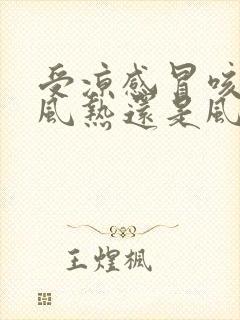 受凉感冒咳
风热还是风
王煌枫